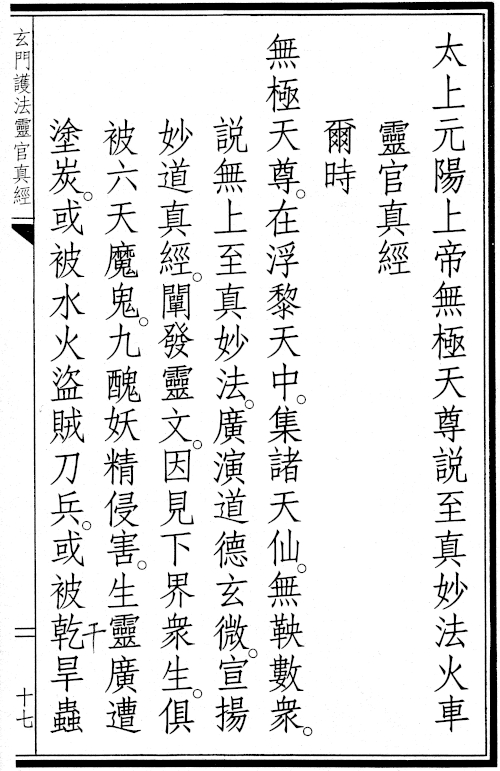 太上元陽上帝無極天尊説至真妙法火車
靈官真經
爾時
無極天尊。在浮黎天中。集諸天仙。無鞅數衆。
説無上至真妙法。廣演道德玄微。宣揚
妙道真經。闡發靈文。因見下界衆生。俱
被六天魔鬼。九醜妖精侵害。生靈廣遭
塗炭。或被水火盜賊刀兵。或被乾旱蟲
干
玄門護法靈官真經
十七